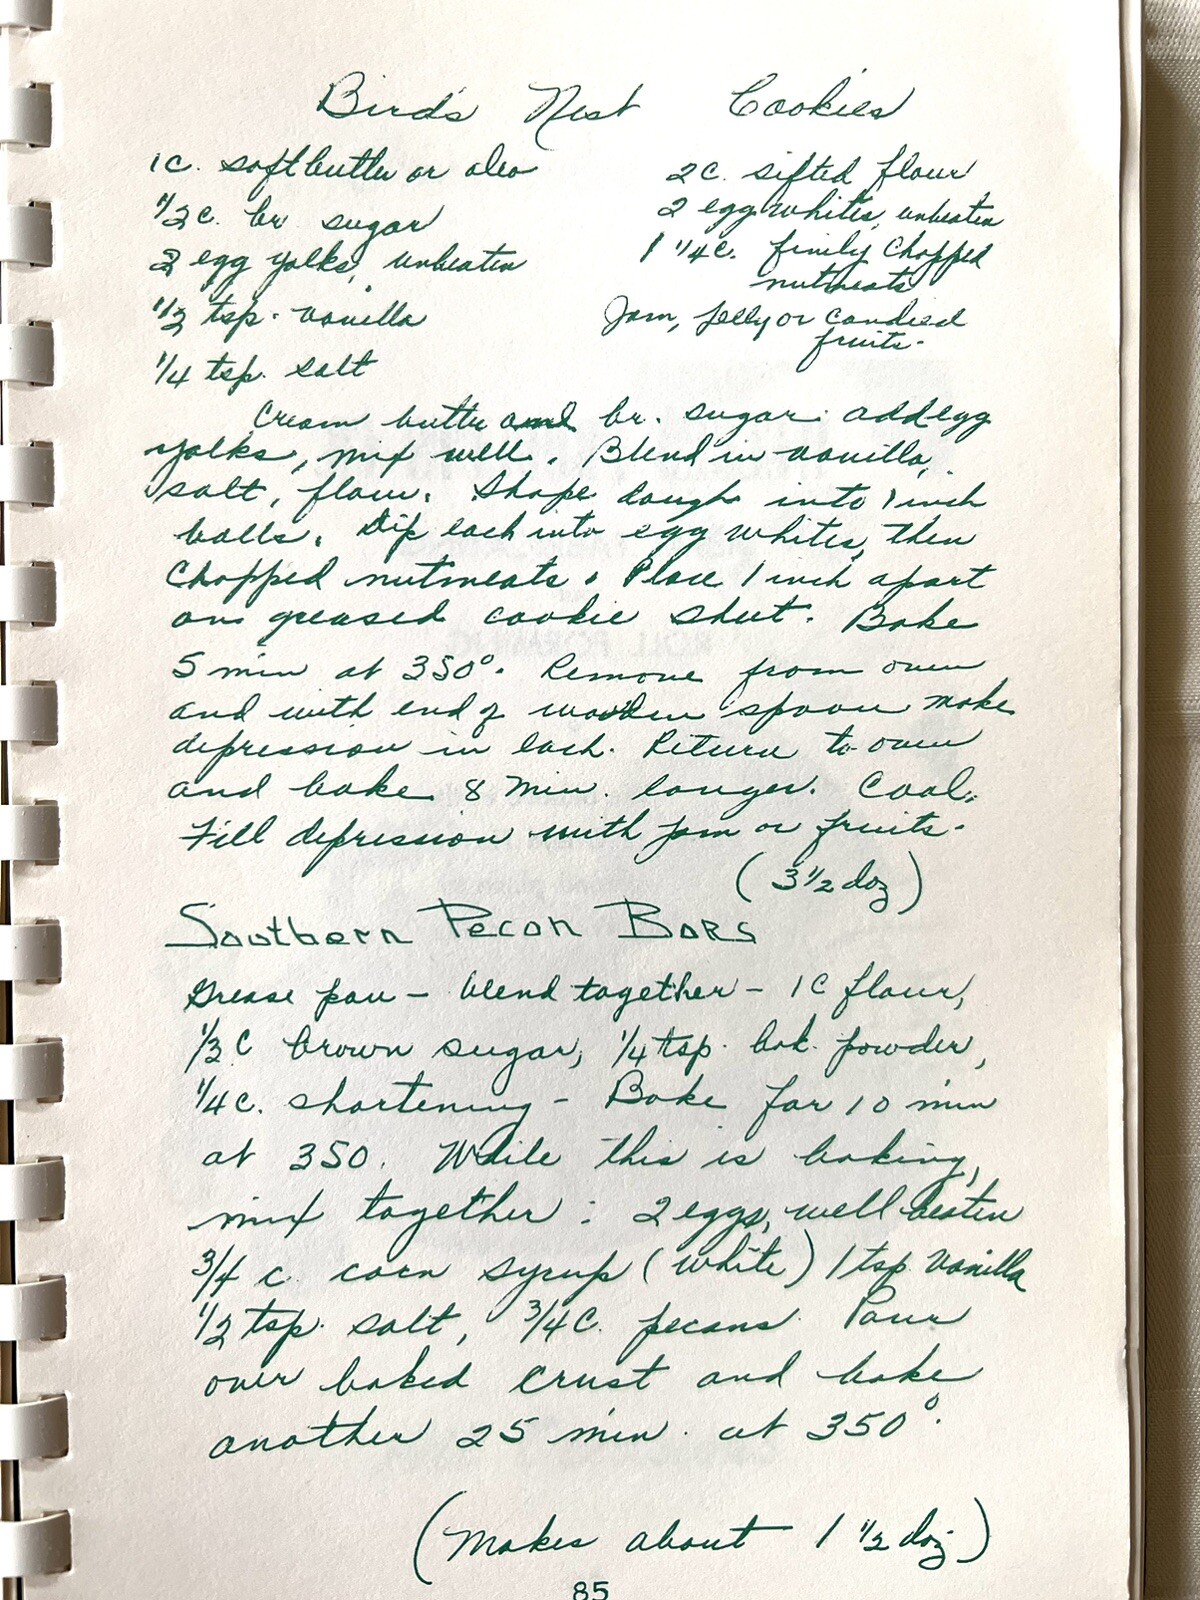 Bird's Nest Cookies
1 c. soft butter or oleo
1/2 c. br sugar
2 egg yolks, unbeaten
1/2 tsp. vanilla
1/4 tsp. salt
2 c. sifted flour
2 egg whites, unbeaten
1 1/4 c. finely chopped
nutmeats
Jam, jelly or candied
fruits.
Cream butter and br. sugar. add egg
yolks, mix well. Blend in vanilla,
salt, flour. Shape dough into 1 inch
balls. Dip each into egg whites, then
chopped nutmeats. Place 1 inch apart
on greased cookie sheet. Bake
5 min at 350°. Remove from oven
and with end of wooden spoon make
depression in each. Return to oven
and bake 8 min. longer. Cool.
Fill depression with jam or fruits.
(3 1/2 doz)
Southern Pecan Bars
Grease pan - blend together - 1 C flour,
1/3 C brown sugar, 1/4 tsp. bak. powder,
1/4 c. shortening - Bake for 10 min
at 350. While this is baking,
mix together: 2 eggs, well beaten
3/4 c. corn syrup (white) 1 tsp vanilla
1/2 tsp. salt, 3/4 C. pecans Pour
over baked crust and bake
another 25 min. at 350°.
(Makes about 1 1/2 doz)
85